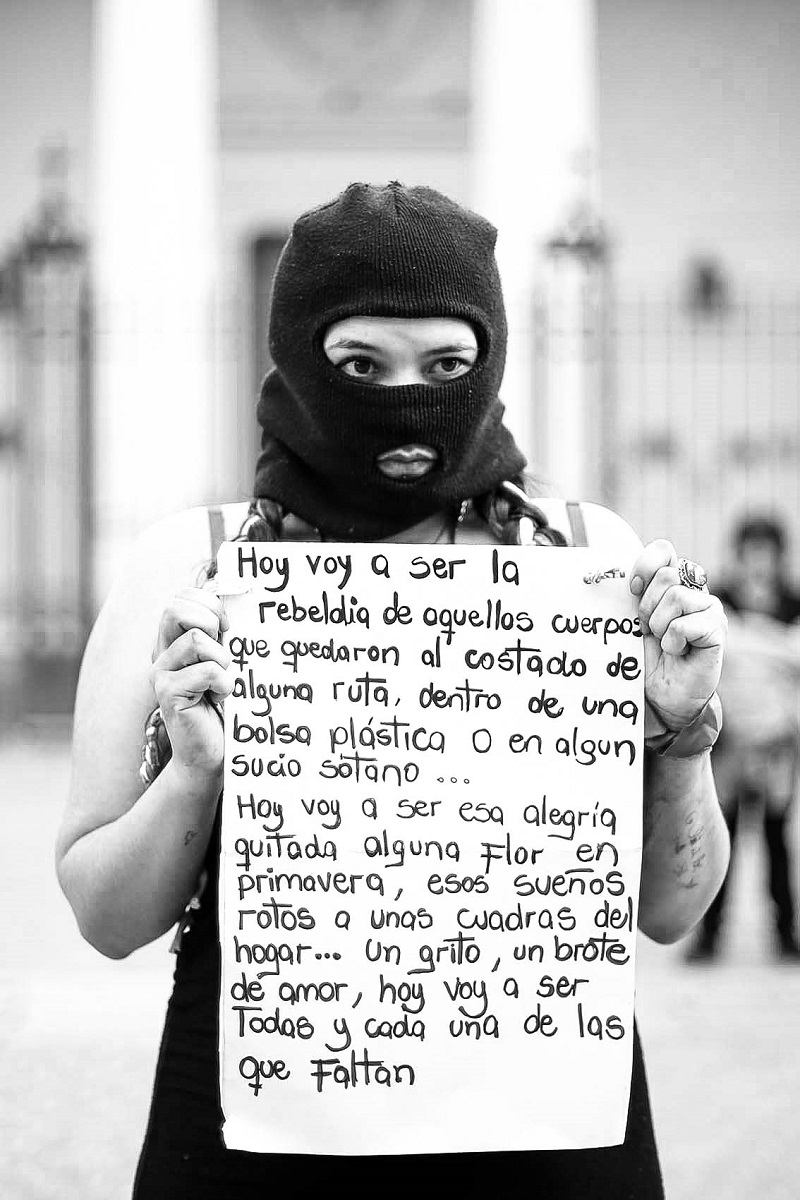 Hoy voy a ser la
rebeldia de aquellos cuerpos
que quedaron al costado de
alguna ruta, dentro de una
bolsa plástica o en algun
sucio sótano ...
Hoy voy a ser esa alegría
quitada alguna Flor en
primavera, esos sueños
rotos a unas cuadras del
hogar... un grito, un brote
de amor, hoy voy a ser
Todas y cada una de las
que Faltan